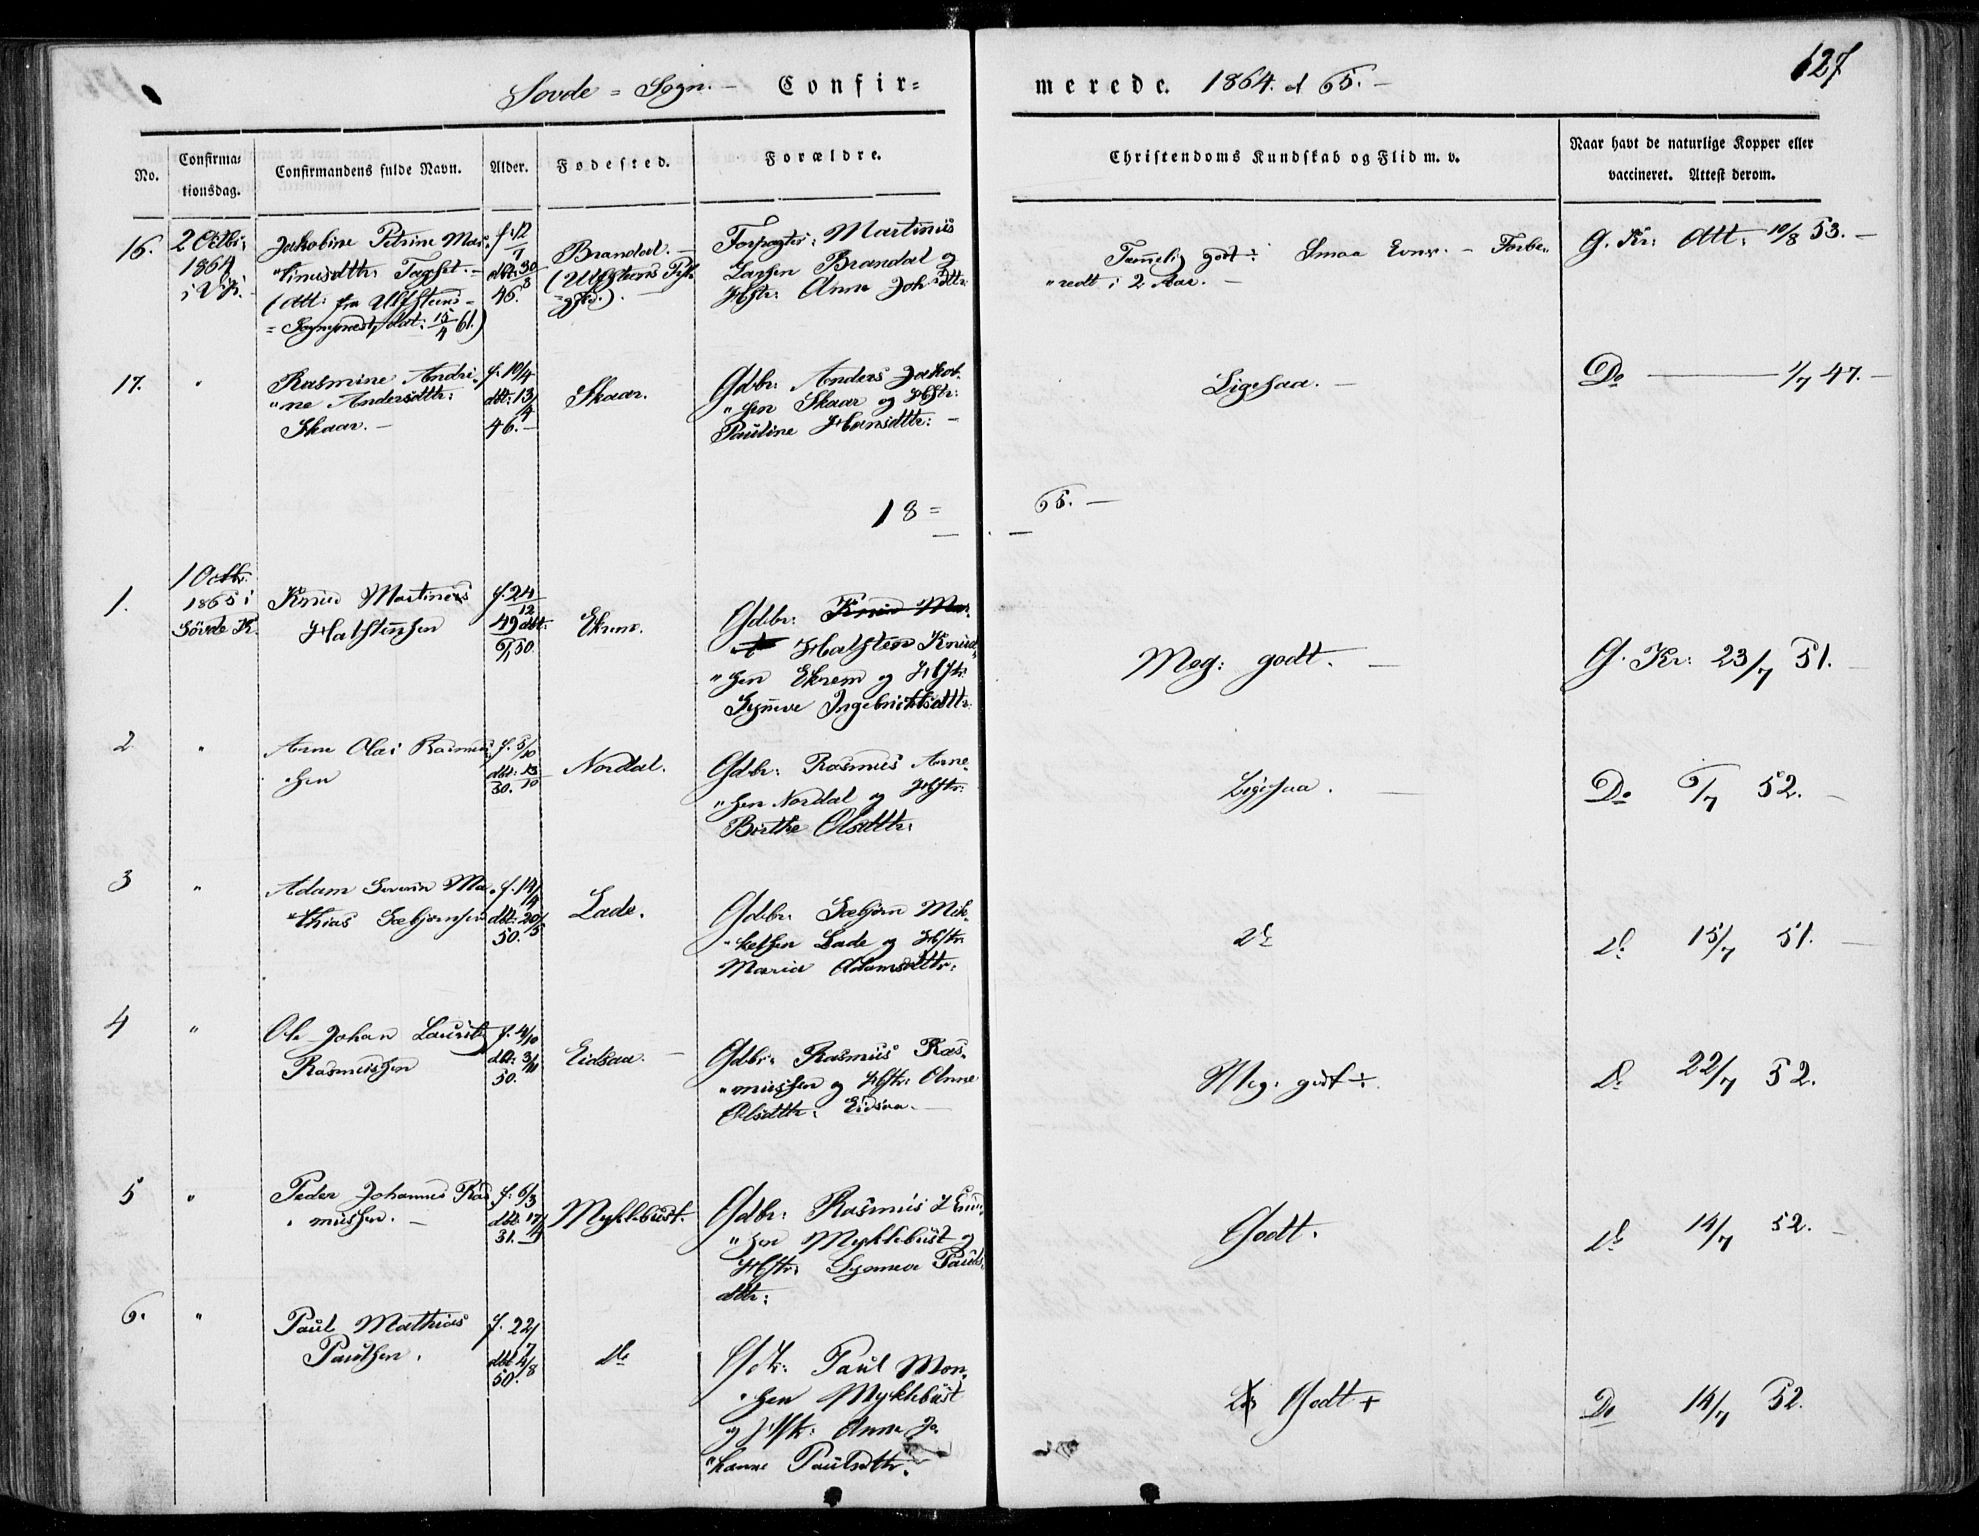 127
Søvde = Sogn. – Confir=
merede. 1864. et 65. –
No.
Confirma=
tionsdag.
Confirmandens fulde Navn.
Alder.
Fødested.
Forældre.
Christendoms Kundskab og Flid m. v.
Naar havt de naturlige Kopper eller
vaccineret. Attest derom.
16.
2 Octbr:
1864
Jakobine Petrine Mar-
"tinusdttr:
(Att: fra Ulfsteens=
=Sognepræst, dat: 15/4 61.)
f: 12
dbt: 30
46.
Brandal. –
(Ulfsteens
Forpagter: Martinus
Larsen Brandal og
Hstr: Anne Joh:dttr:
Temmelig godt ÷ Smaa Evner. – Forbe-
"redt i 2 Aar. –
G. Kr: Att: 10/8 53. –
17.
"
Rasmine Andri-
"ne Andersdttr:
Skaar. –
f: 10/4
dbt: 13/4
46. –
Skaar.
Gdbr: Anders Jakob-
"sen Skaar og Hstr:
Pauline Hansdttr: –
Ligesaa. –
Do – 1/7 47. –
18 = 65. –
1.
1 Octbr.
1865 i
Søvde K.
Knud Martinus
Halstensen
f. 24/12
49 dbt:
6/1 50
Ekrem.
Gdbr: Knud Mar-
Halsten Knud-
"sen Ekrem og Hstr:
Synneve Ingebrichtsdttr:
Meg: godt. –
G. Kr: 23/7 51. –
2
"
Arne Olai Rasmus-
sen
f. 5/10
dbt: 13/10
50.
Nordal.
Gdbr: Rasmus Arne-
"sen Nordal og Hstr:
Birthe Olsdttr:
Ligesaa. –
Do 6/7 52. –
3
"
Adam Severin Ma-
"thias Sæbjørnsen
f. 14/4
dbt: 20/5
50.
Lade.
Gdbr: Sæbjørn Mik-
"kelsen Lade og Hstr:
Maria Adamsdttr:
Do
Do 15/7 51. –
4
"
Ole Johan Laurits
Rasmussen
f. 4/10
dbt: 3/11
50.
Eidsaa. –
Gdbr: Rasmus Ras-
"mussen og Hstr: Anne
Olsdttr: Eidsaa. –
Meg: godt ÷.
Do 22/7 52.
5
"
Peder Johannes Ras
"mussen. –
f: 6/3
dbt: 17/4
51. –
Myklebust.
Gdbr: Rasmus Knud-
"sen Myklebust og
Hstr: Synneve Pauls-
dttr:
Godt.
Do 14/7 52. –
6.
"
Paul Mathias
Paulsen.
f. 22/7
dbt 4/8
50.
Do
Gdbr: Paul Mon-
"sen Myklebust
og Hstr: Anne Jo-
"hanne Paulsdttr.
Do Godt +
Do 14/7 52.